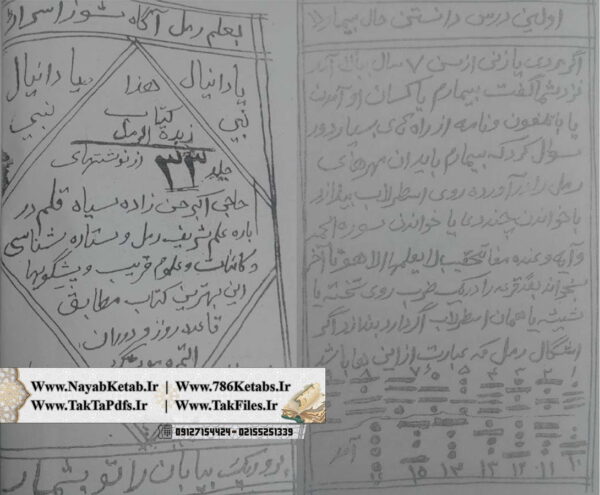 بعلم رمل آگاه شوز اسرار
یا دانیال نبی
هذا
یا دانیال نبی
کتاب
زبدة الرمل
جلد ۳۳ از نوشتهای
حاجی زاده سیاه قلم در
باره علم شریف رمل و ستاره شناسی
و کائنات و علوم غریب و پیشگویها
این بهترین کتاب مطابق
قاعده روز و دوران
ریگ بیابان را تو بشمار
اولین درس دانستن حال بیمار
اگر مردی یا زنی از سن ۷ سال ببالا آمد
نزد شما گفت بیمارم یا کسان او آمدن
یا با تلفون و نامه از راه های بسیار دور
سوال کرد که بیمارم باید آن مهرهای
رمل را در آورده روی اسطرلاب بیندازد
با خواندن چند دعا یا خواندن سوره الحمد
و آیه وعنده مفاتح الغیب لا یعلمها الا هو تا آخر
بخواند روی تخته یا
شیشه یا همان اسطرلاب اگر دارد بیندازد اگر
اشکال رمل که عبارت از این نها باشد
۱ ۲ ۳ ۴ ۵ ۶ ۷ ۸
۱۰ ۱۱ ۱۲ ۱۳ ۱۴ ۱۵
www.NayabKetab.Ir | www.786Ketabs.Ir
www.TakTaPdfs.Ir | www.TakFiles.Ir
09127154424 - 02155251339